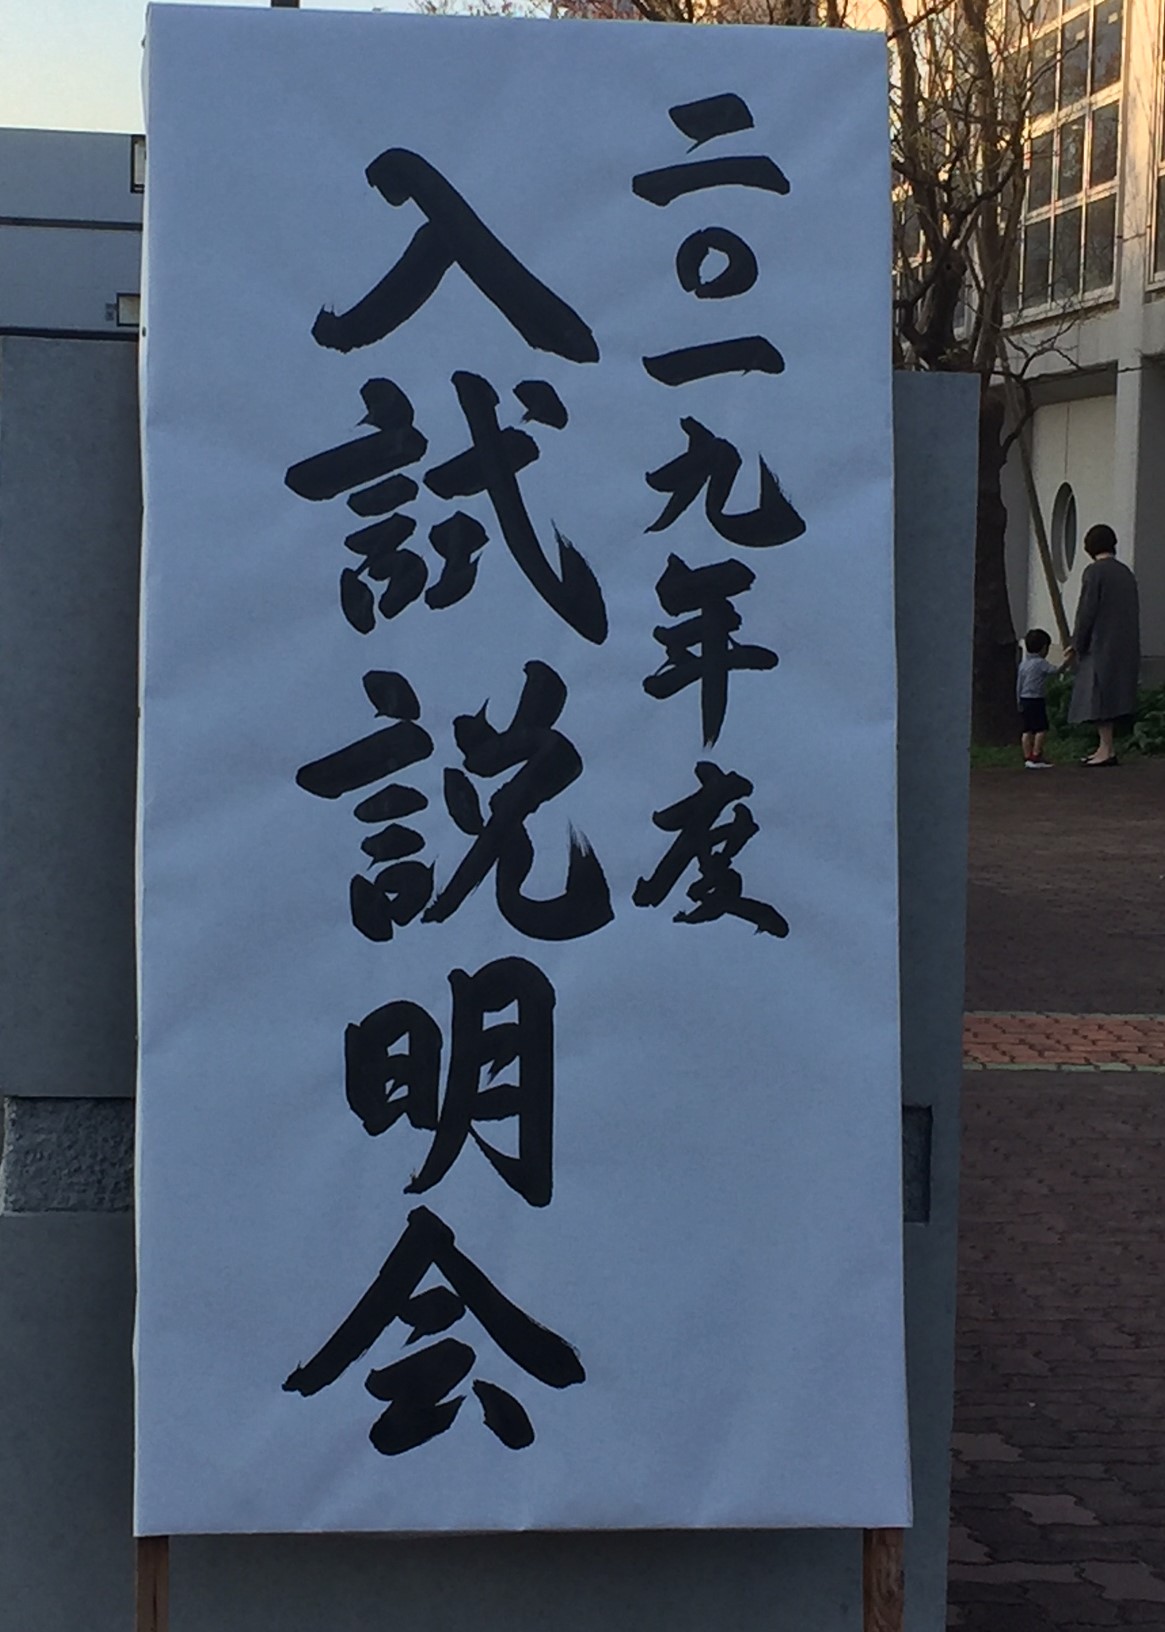 二〇一九年度
入試説明会